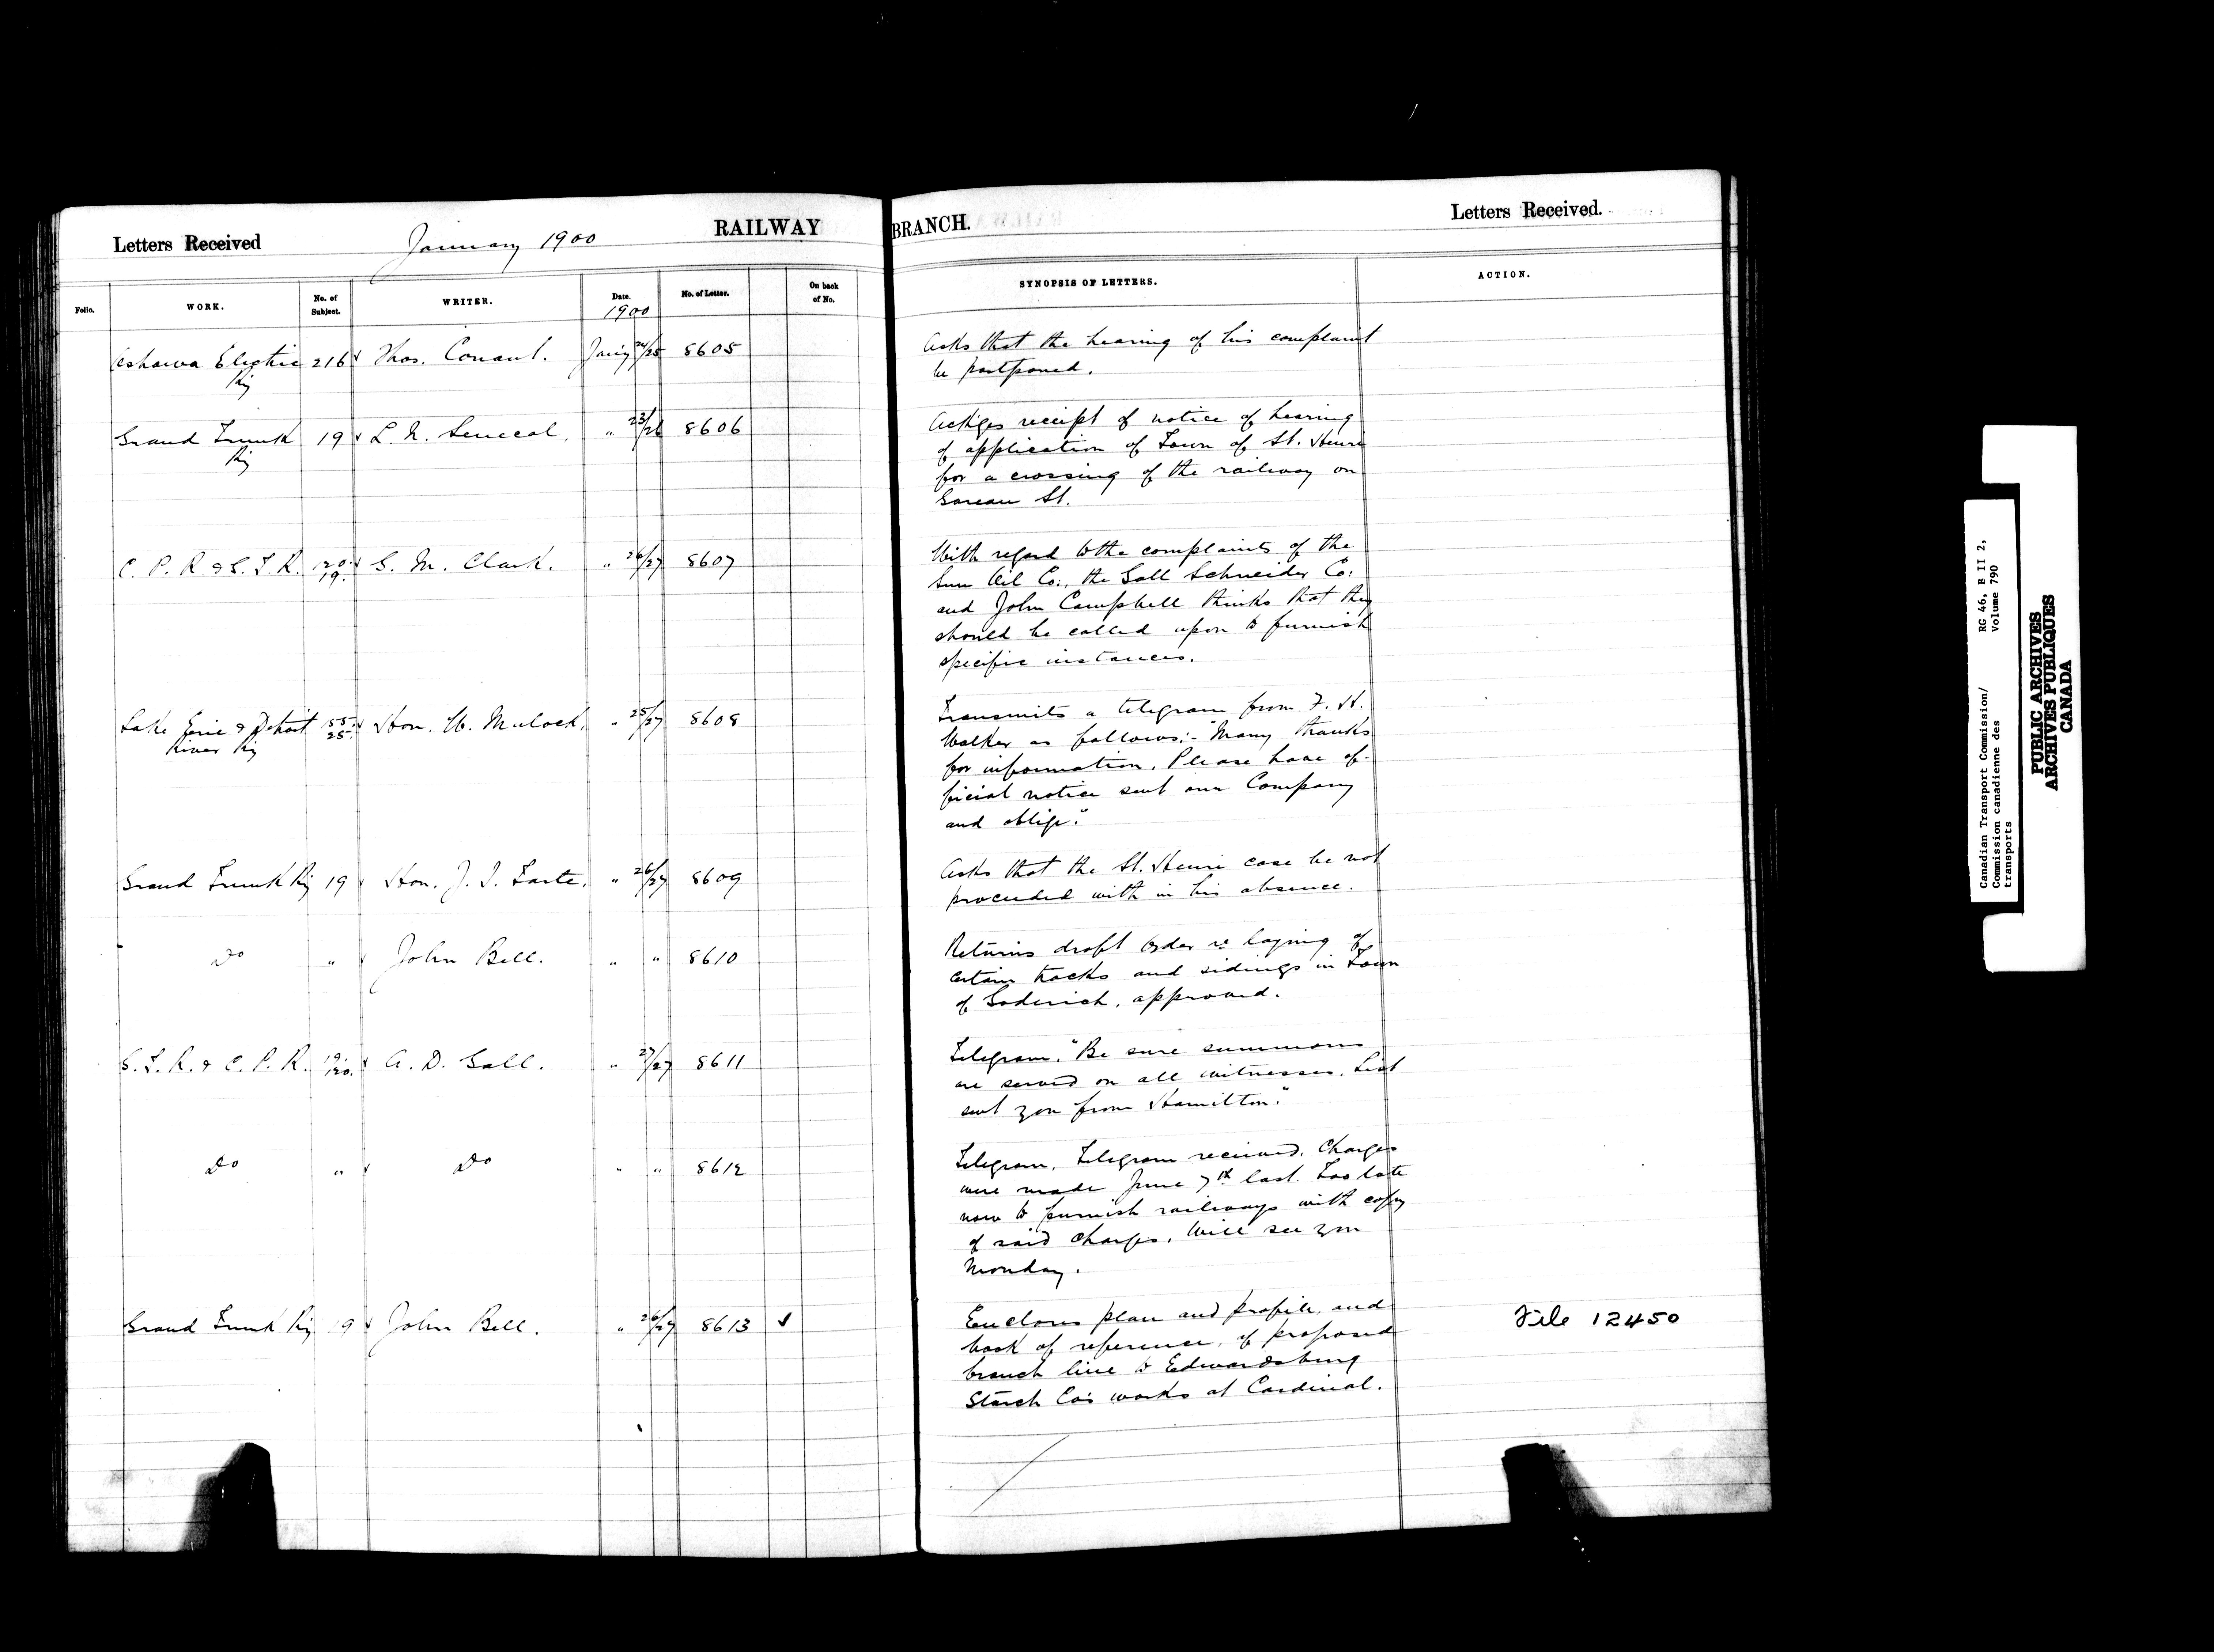 Letters Received
January 1900
RAILWAY BRANCH.
Letters Received.
Folio. WORK. No. of Subject. WRITER. Date. 1900 No. of Letter. On back of No. SYNOPSIS OF LETTERS. ACTION.
Oshawa Electric Ry 216 Thos. Conant. Jan'y 24/25 8605
Asks that the hearing of his complaint
be postponed.
Grand Trunk Ry 19 L. N. Senecal. " 23/26 8606
Ackges receipt of notice of hearing
of application of Town of St. Henri
for a crossing of the railway on
St.
C. P. R. & G. T. R. 20. 19. S. M. Clark. " 26/27 8607
With regard to the complaints of the
Sun Oil Co:, the Gall Schneider Co:
and John Campbell thinks that they
should be called upon to furnish
specific instances.
Lake Erie & Detroit River Ry 55. 25. Hon. W. Mulock. " 25/27 8608
Transmits a telegram from F. H.
Walker as follows:- "Many thanks
for information. Please have of-
ficial notice sent our Company
and oblige."
Grand Trunk Ry 19 Hon. J. I. Tarte. " 26/27 8609
Asks that the St. Henri case be not
proceeded with in his absence.
Do " John Bell. " " 8610
Returns draft Order re laying of
certain tracks and sidings in Town
of Goderich, approved.
G. T. R. & C. P. R. 19. 20. A. D. Gall. " 27/27 8611
Telegram. "Be sure summons
are served on all witnesses. List
sent you from Hamilton."
Do " Do " " 8612
Telegram. Telegram received. Charges
were made June 7th last. Too late
now to furnish railways with copy
of said charges. Will see you
Monday.
Grand Trunk Ry 19 John Bell. " 26/27 8613 ✓
Encloses plan and profile, and
book of reference, of proposed
branch line to Edwardsburg
Starch Co's works at Cardinal.
File 12450
Canadian Transport Commission/ RG 46, B II 2,
Commission canadienne des Volume 790
transports
PUBLIC ARCHIVES
ARCHIVES PUBLIQUES
CANADA